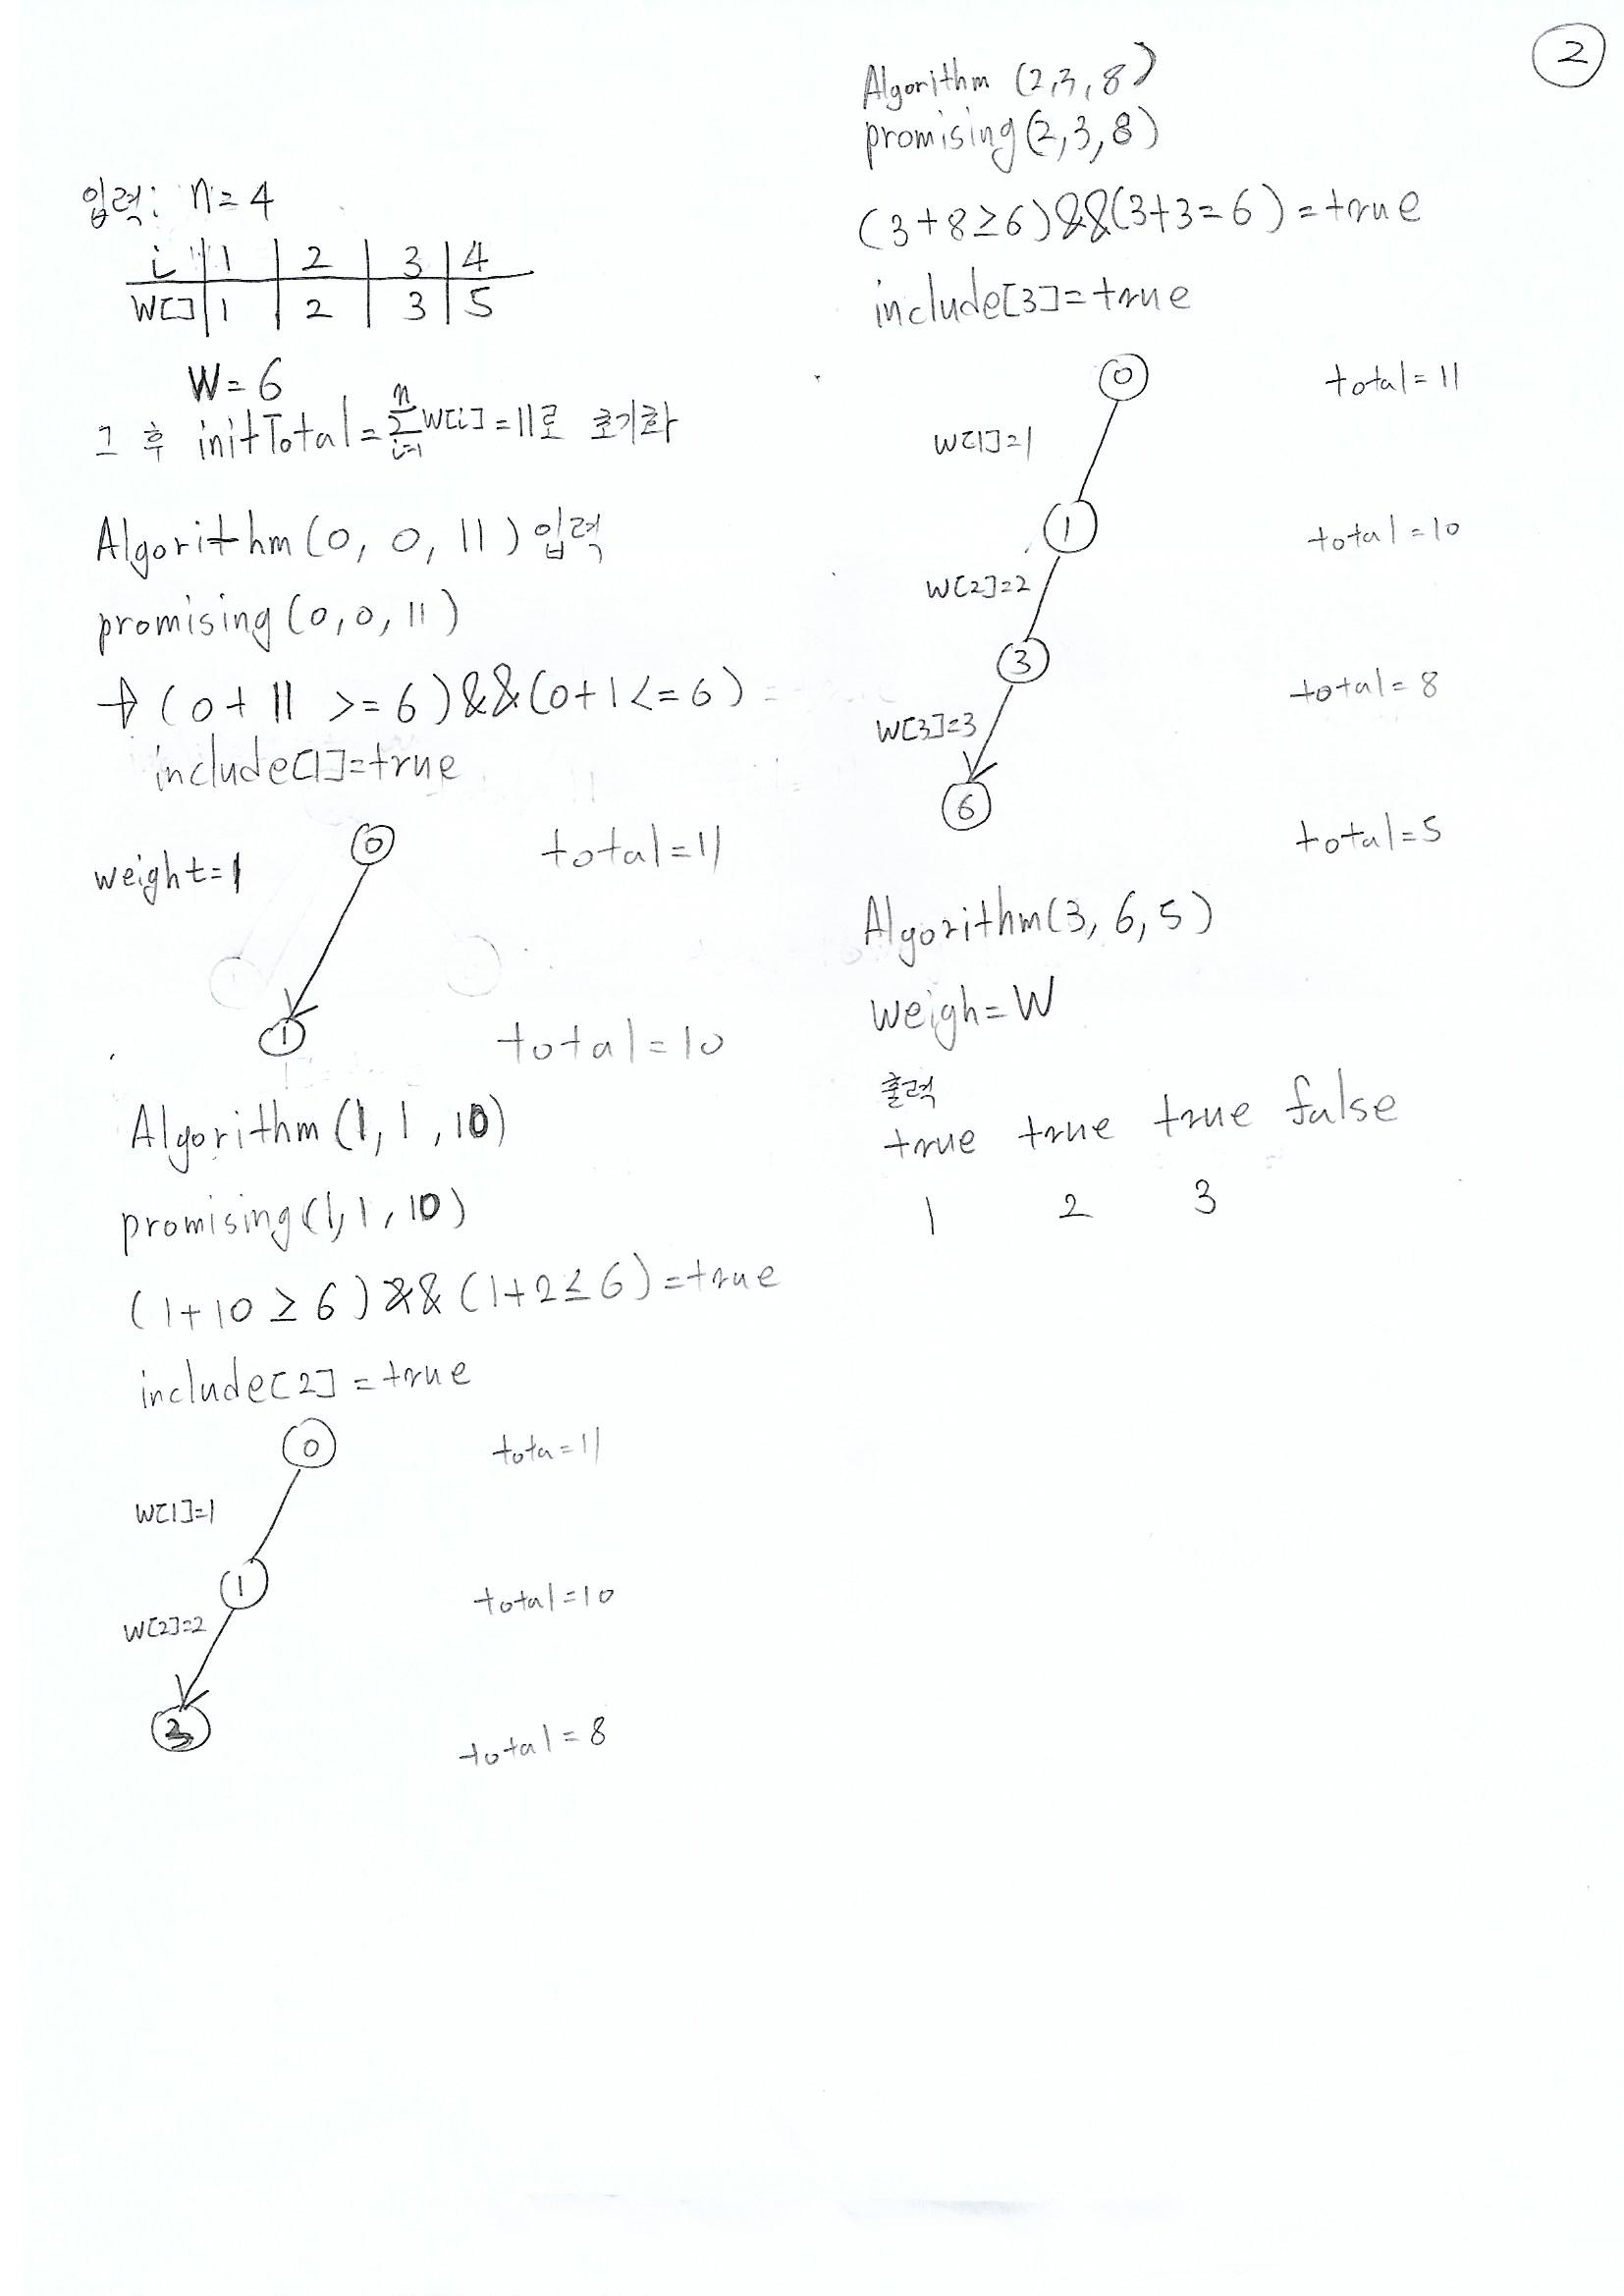 2
입력: n=4
i 1 2 3 4
W[] 1 2 3 5
W=6
그 후 initTotal=∑ⁿᵢ₌₁W[i]=11로 초기화
Algorithm(0, 0, 11) 입력
promising(0,0,11)
→ (0+11 >=6)&&(0+1<=6)=
include[1]=true
weight=1
0
total=11
1
total=10
Algorithm(1,1,10)
promising(1,1,10)
(1+10≥6)&&(1+2≤6)=true
include[2]=true
0
tota=11
W[1]=1
1
total=10
W[2]=2
3
total=8
Algorithm (2,3,8)
promising(2,3,8)
(3+8≥6)&&(3+3=6)=true
include[3]=true
0
total=11
W[1]=1
1
total=10
W[2]=2
3
total=8
W[3]=3
6
total=5
Algorithm(3,6,5)
weigh=W
출력
true true true false
1 2 3